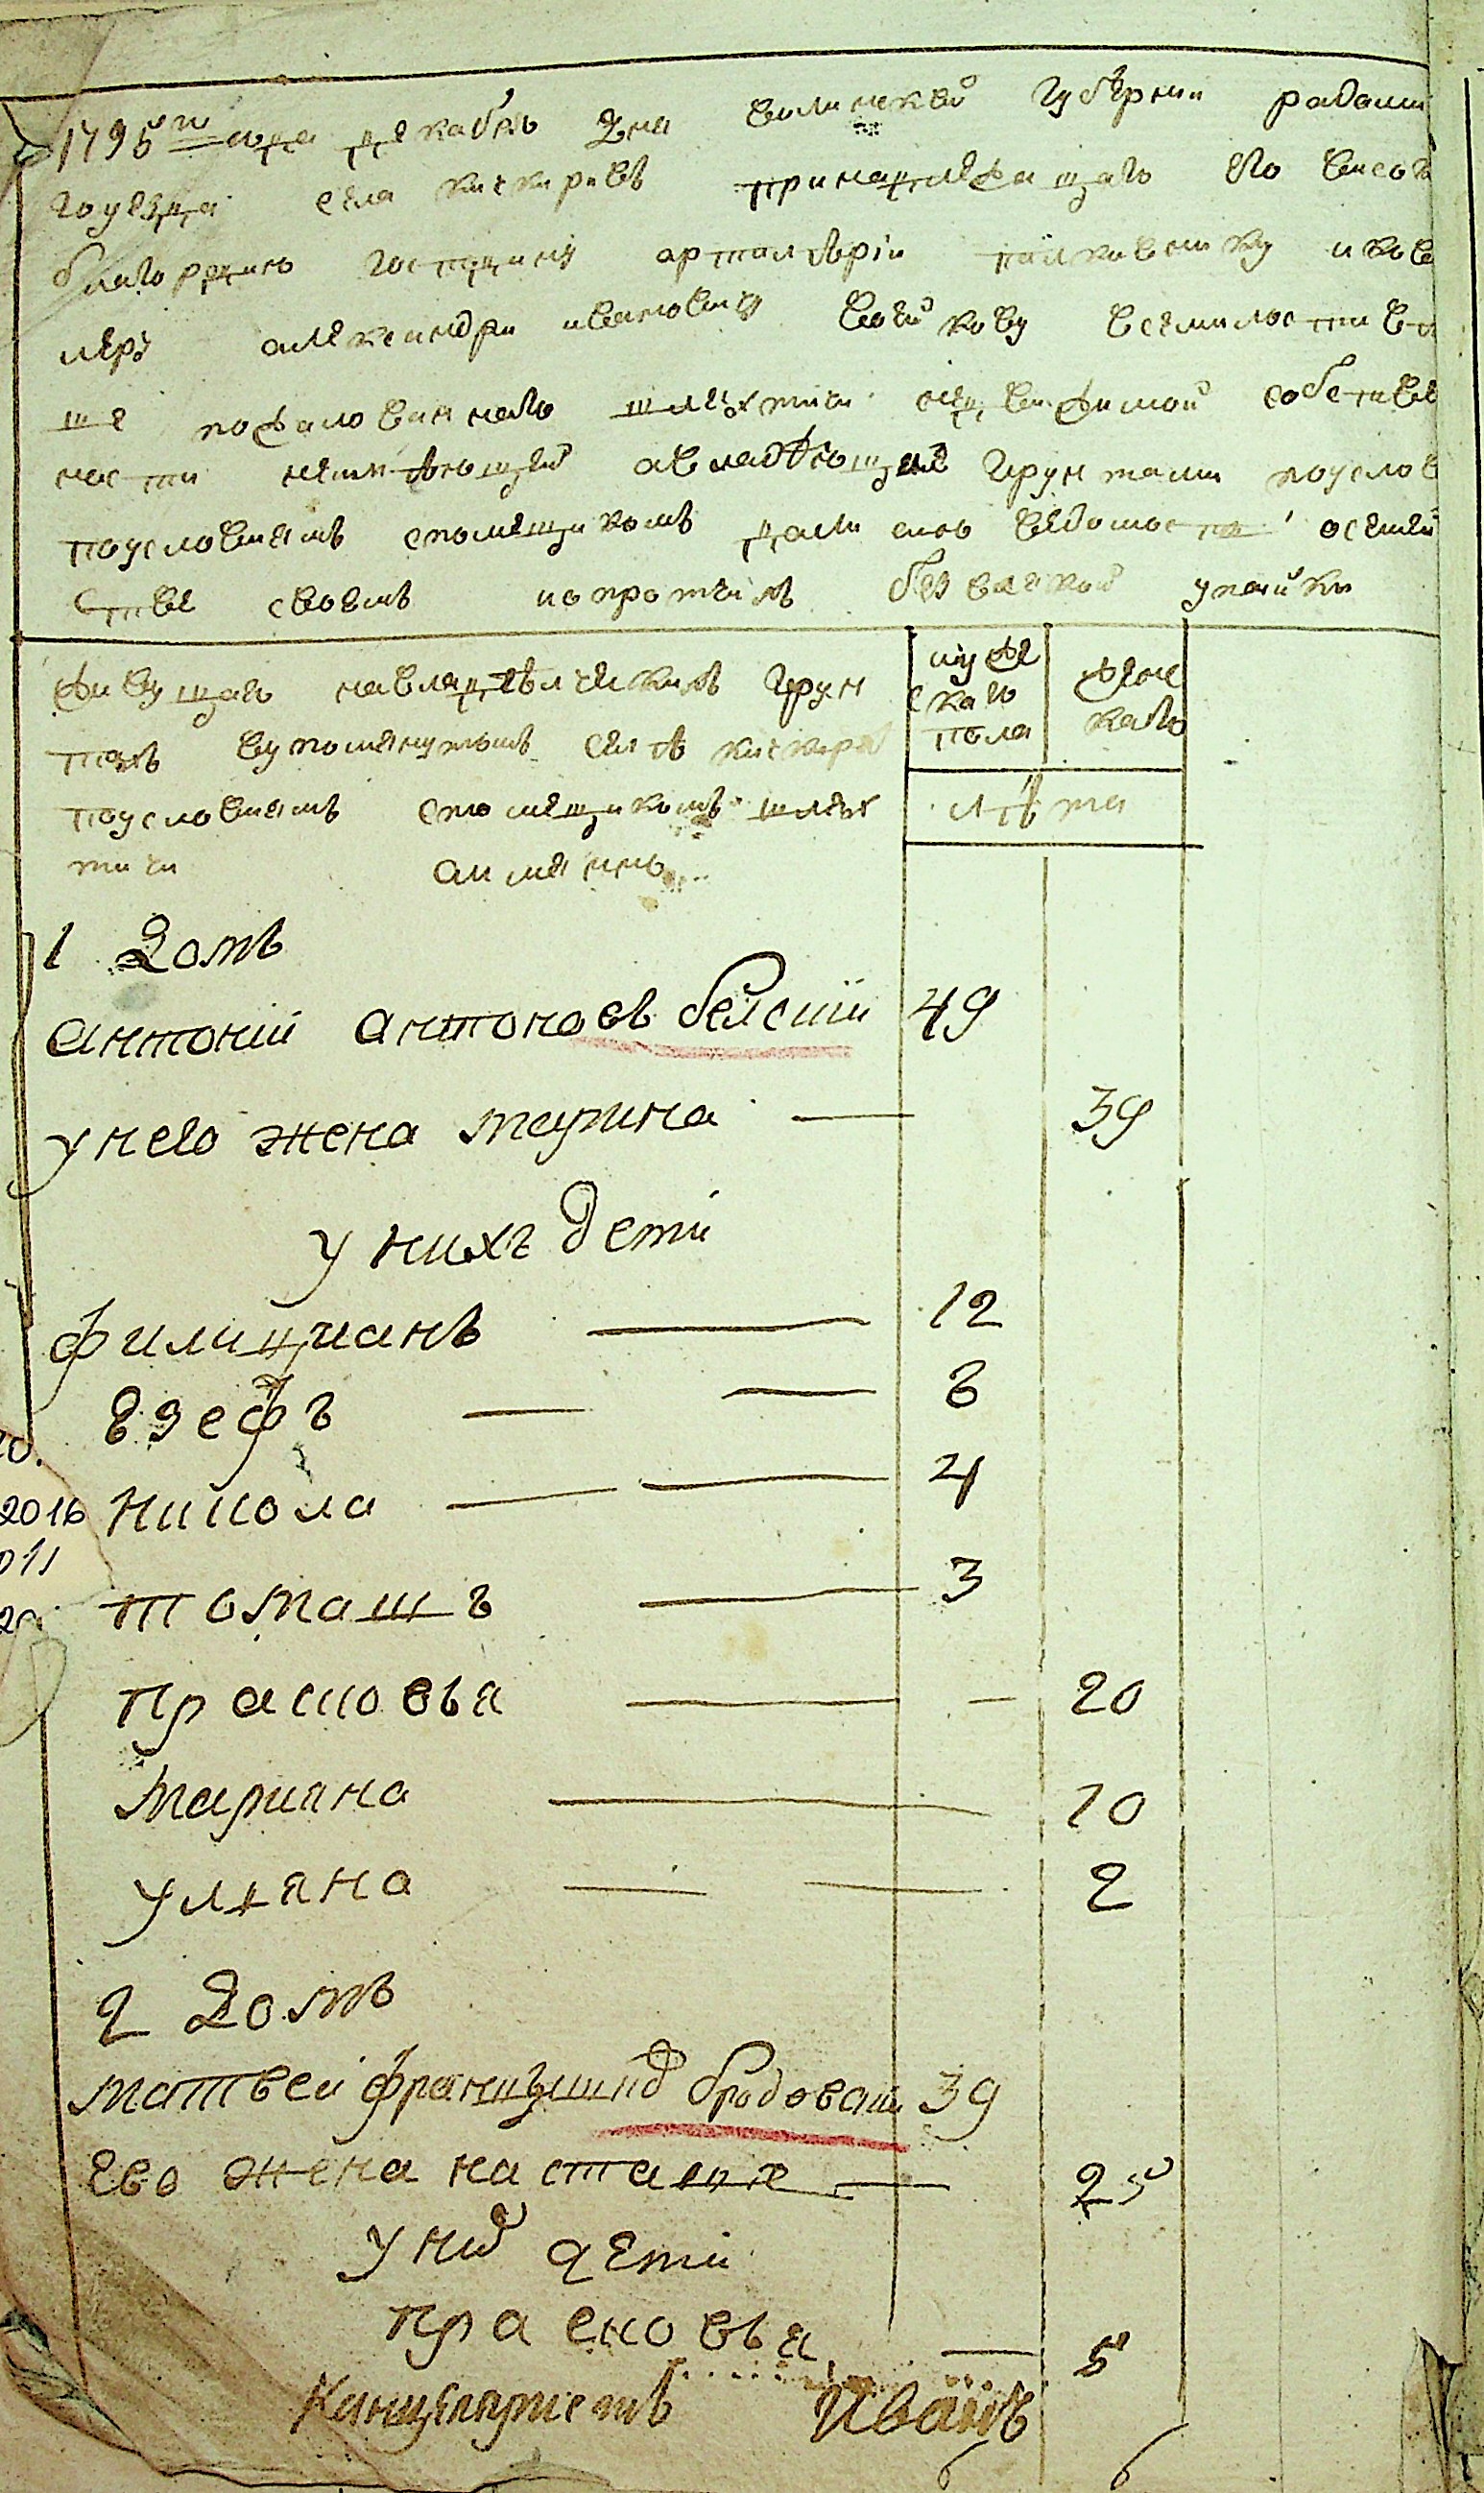 1795го года декабра дня волинской губернии радомы
го уезда села кичкировъ принадлежащаго его высоко
благородию господину артилерiи полковнику и кова
леру александру ивановичу воейкову всемилостивей
ше пожалованнаго шляхтичи недвижимой собствен
ности неимѣющей авладѣющей грунтами поуслов
поусловиямъ спомещикомъ дали сию ведомость осемей
стве своемъ ипротчихъ без всякой утайки
живущаго навладѣлческихъ грун
тахъ вупомянутомъ селѣ кичкире
поусловиямъ спомещикомъ шлях
тичи аимянно
муже
скаго
пола
женс
каго
лѣта
1 Домъ
Антонiй антоновъ белскiй 49
у него жена марина 39
у нихъ дети
филицианъ 12
езефъ 8
никола 4
томашъ 3
прасковья 20
марияна 10
уляна 2
2 Домъ
матвей бродовски 39
ево жена настасия 25
у них дети
прасковья 5
Канцеляристъ Иванъ
2016
011